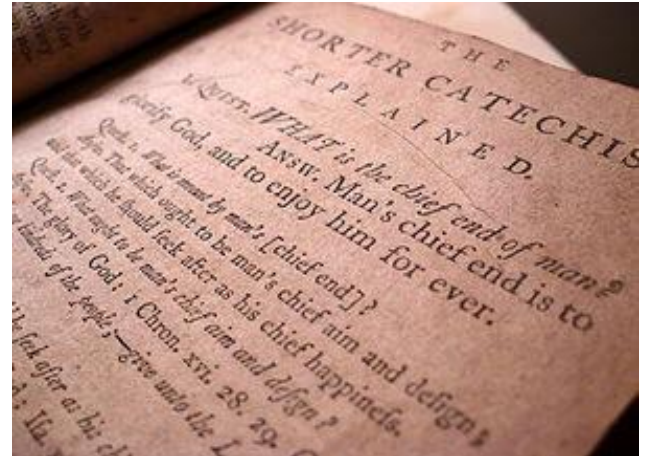 THE
SHORTER CATECHIS
EXPLAINED.
1. QUEST. WHAT is the chief end of man?
ANSW. Man's chief end is to
glorify God, and to enjoy him for ever.
Quest. 1. What is meant by man's [chief end]?
Answ. That which ought to be man's chief aim and deſign;
and that which he ſhould ſeek after as his chief happineſs.
Queſt. 2. What ought to be man's chief aim and deſign?
Anſw. The glory of God: 1 Chron. xvi. 28. 29. G
kindreds of the people,—give unto the L
ſeek after as his chi
Iſa.